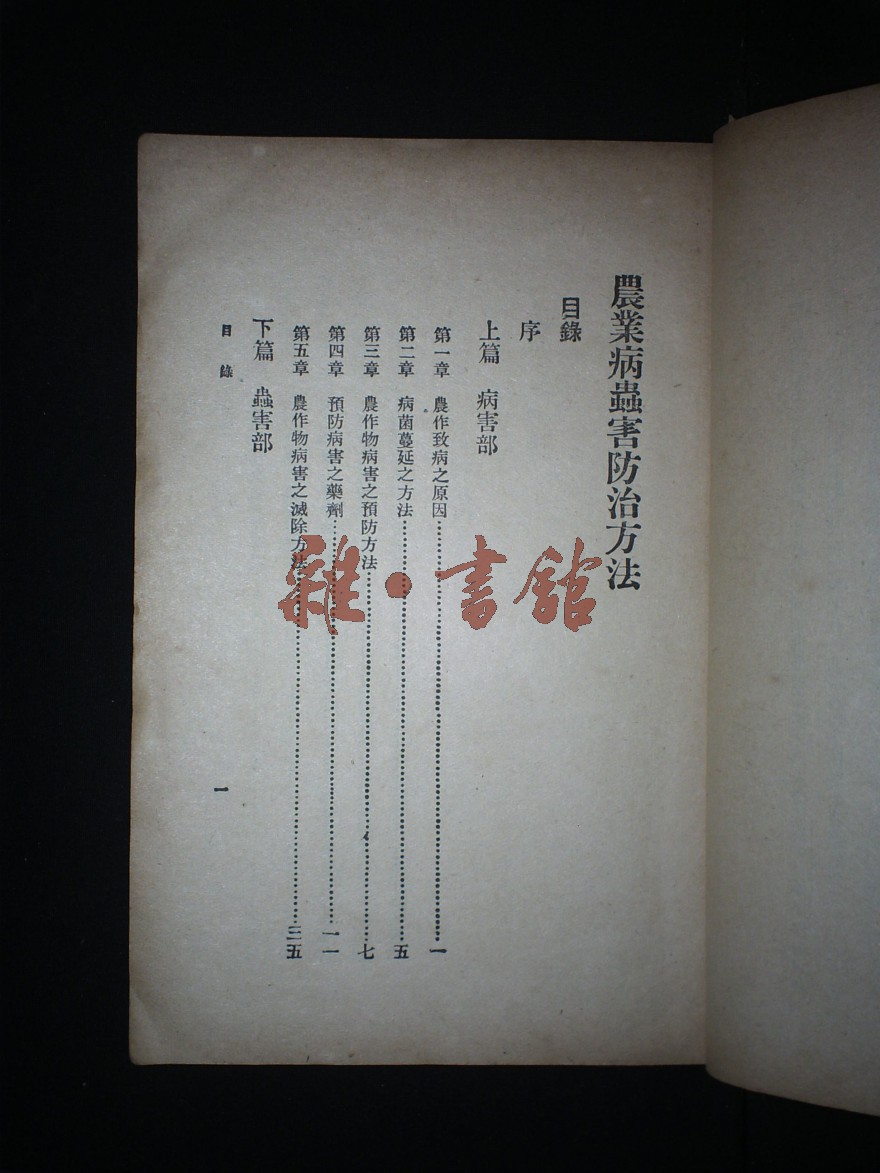 農業病蟲害防治方法
目錄
序
上篇 病害部
第一章 農作致病之原因……一
第二章 病菌蔓延之方法……五
第三章 農作物病害之預防方法……七
第四章 預防病害之藥劑……一一
第五章 農作物病害之滅除方法……三五
下篇 蟲害部
目錄 一
雜·書館